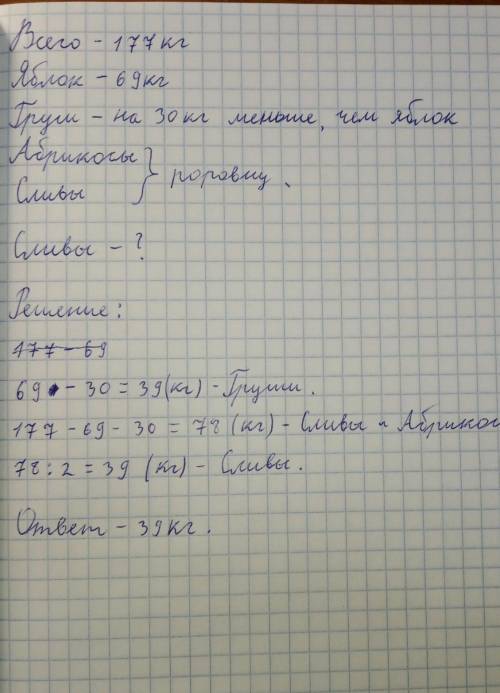 Всего - 177кг
Яблок - 69кг
Груш - на 30кг меньше, чем яблок
Абрикосы
Сливы } поровну.
Сливы - ?
Решение:
177 - 69
69 - 30 = 39(кг) - Груши.
177 - 69 - 30 = 78 (кг) - Сливы и Абрикос
78 : 2 = 39 (кг) - Сливы.
Ответ - 39кг.